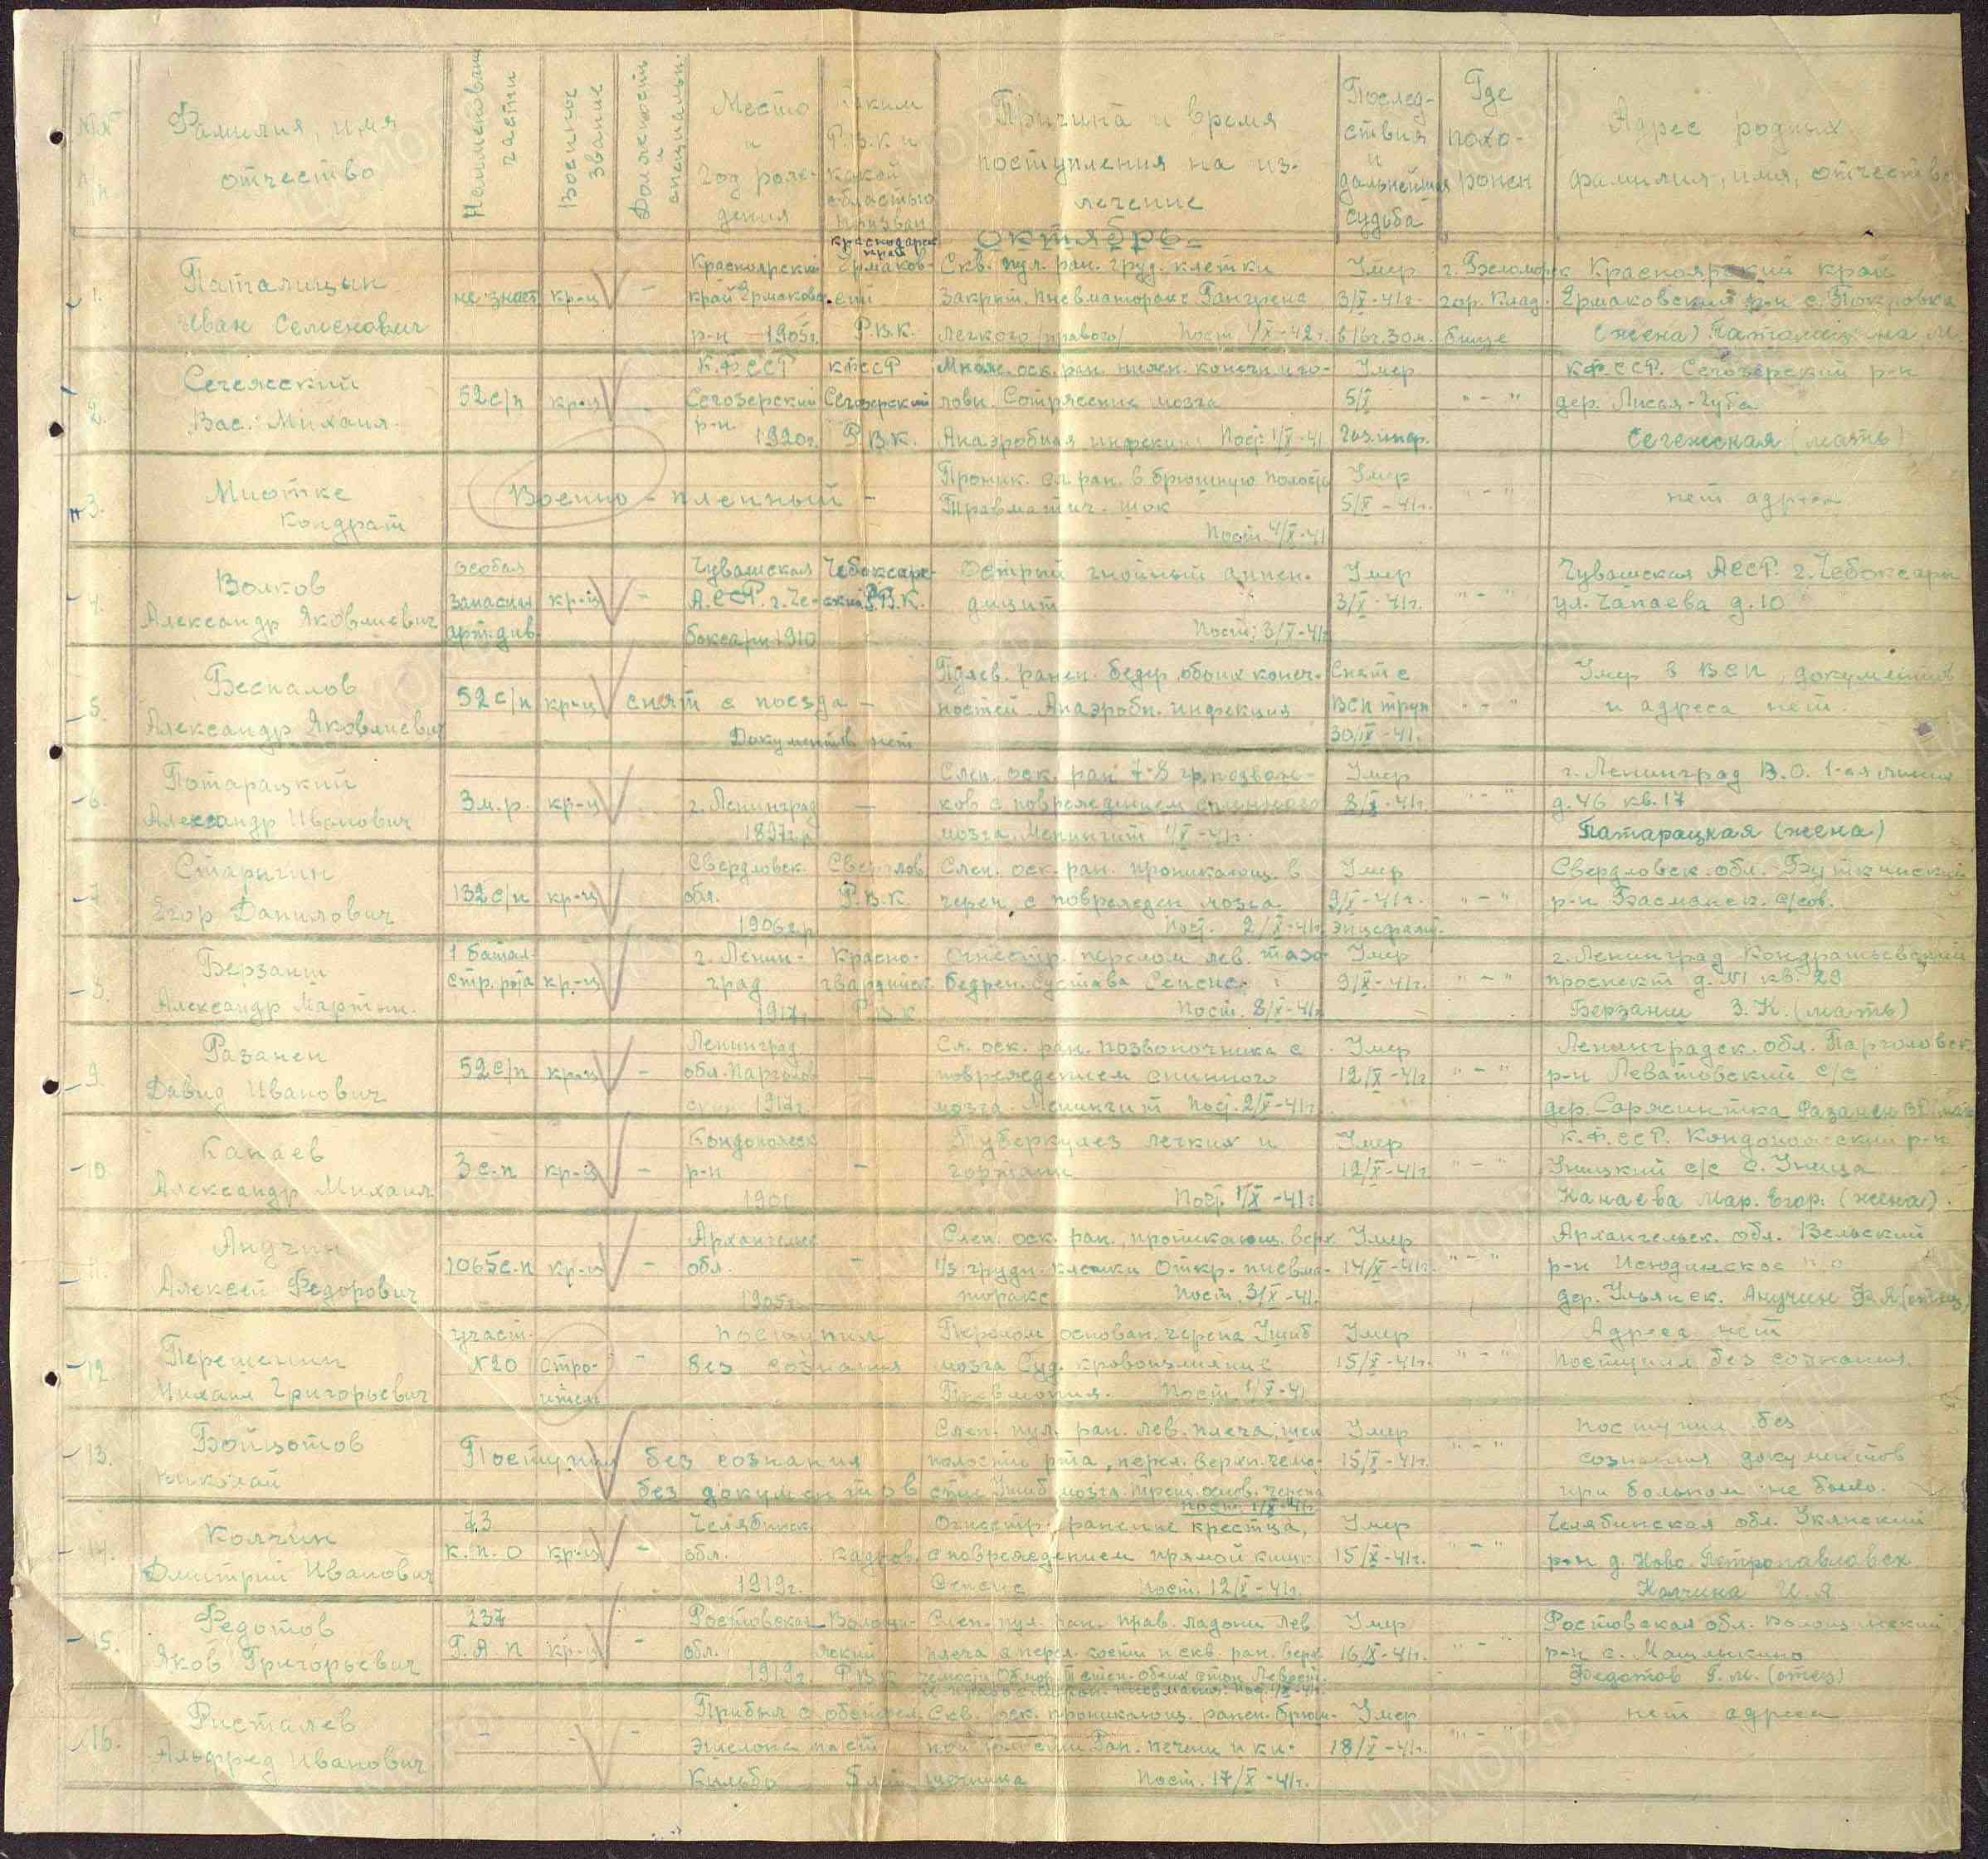 №№ п/п.
Фамилия, имя отчество
Наименован. части
Военное звание
Должность и специальн.
Место и год рождения
Каким Р.В.К и какой областью призван
Причина и время поступления на излечение
Последствия и дальнейшая судьба
Где похоронен
Адрес родных фамилия, имя, отчество
Октябрь
Краснодарск край
1. Паталицын Красноярский Ермаков- Скв. пул. ран. груд. клетки Умер г. Беломорск Красноярский край
не знает кр-ц - край Ермаковс. ский Закрыт. пневматоракс Гангрена 3/X-41г. гор. клад- Ермаковский р-н с. Покровка
Иван Семенович р-н 1905г. Р.В.К. легкого /правого/ Пост. 1/X-42г. в 16ч. 30м. бище (жена)
2. Сегежский К.Ф.ССР КФССР Множ. оск. ран. нижн. конечн. и го- Умер КФССР. Сегозерский р-н
52с/п кр-ц - Сегозерский Сегозерский ловы. Сотрясение мозга 5/X " - " дер. Лисья-Губа
Вас. Михаил. р-н 1920г. Р.В.К. Анаэробная инфекция Пост. 1/X-41 Газ. инф. Сегежская (мать)
3. Миотке Военно-пленный - Проник. ск. ран. в брюшную полость Умер нет адреса
Кондрат Травматич. шок 5/X-41г. " - "
Пост. 4/X-41
4. Волков особая Чувашская Чебоксарс- Острый гнойный аппен- Умер Чувашская АССР. г. Чебоксары
запасная кр-ц - А.ССР. г. Че- ский Р.В.К. дицит 3/X-41г. " - " ул. Чапаева д. 10
Александр Яковлевич арт. див. боксары 1910 Пост. 3/X-41г
5. Беспалов ранен. бедер обоих конеч- Снят с Умер в ВСП, документов
52с/п кр-ц снят с поезда - ностей. Анаэробн. инфекция ВСП труп " - " и адреса нет.
Александр Яковлевич Документов нет 30/IX-41г.
6. Потарацкий Слеп. оск. ран. 7-8 гр. позвон- Умер г. Ленинград В.О. 1-ая линия
3м.р. кр-ц - г. Ленинград - ков с повреждением спинного 8/X-41г. " - " д. 46 кв. 17
Александр Иванович 1897г.р. мозга. Менингит 1/X-41г. Патарацкая (жена)
7. Старыгин Свердловск. Свердлов Слеп. оск. ран. проникающ. в Умер Свердловск. обл. Буткинский
132с/п кр-ц - обл. Р.В.К череп с поврежден мозга 9/X-41г. " - " р-н Басманск. с/сов.
Егор Данилович 1906г.р Пост. 2/X-41г. энцефалит.
8. Берзанш 1 батал- г. Ленин- Красно- Огнестр. перелом лев. тазо Умер г. Ленинград Кондратьевский
стр. рота кр-ц град гвардийск. бедрен. сустава Сепсис. 9/X-41г. " - " проспект кв. 29
Александр Мартын. 1917г. Р.В.К. Пост. 8/X-41г Берзанш З.К. (мать)
9. Разанен Ленинград Сл. оск. ран. позвоночника с Умер Ленинградск. обл. Парголовск.
52с/п кр-ц - обл. Парголов - повреждением спинного 12/X-41г " - " р-н Левашовский с/с
Давид Иванович 1917г. мозга. Менингит Пост. 2/X-41г. дер.
10. Канаев Кондопожск Туберкулез легких и Умер К.Ф.ССР. Кондопожский р-н
3с.п кр-ц - р-н - гортани 12/X-41г " - " Уницкий с/с с. Уница
Александр Михаил. 1901 Пост. 1/X-41г Канаева Мар. Егор. (жена).
11. Анучин Архангельс Слеп. оск. ран., проникающ. верх Умер Архангельск. обл. Вельский
1065с.п кр-ц - обл. - 1/3 грудн. клетки Откр. пневмо- 14/X-41г. " - " р-н
Алексей Федорович 1905г. торакс Пост. 3/X-41. дер. Ульянск. Анучин (отец)
12. Перешенин участ. поступил Перелом основан. черепа Ушиб Умер Адреса нет
№20 строи- - без сознания мозга Суд. кровоизлияние 15/X-41г. " - " поступил без сознания.
Михаил Григорьевич тель Пневмония. Пост. 1/X-41
13. Бойцотов Слеп. пул. ран. лев. плеча, шеи Умер поступил без
Поступил без сознания полости рта, перел. верхн. челю- 15/X-41г. " - " сознания документов
Николай без документов сти Ушиб мозга. Трещ. основ. черепа при больном не было.
Пост. 1/X-41г.
14. Колчин 73 Челябинск Огнестр. ранение крестца, Умер Челябинская обл. Укянский
к.п.о кр-ц - обл. кадров. с повреждением прямой кишк 15/X-41г. " - " р-н д. Ново Петропавловск
Дмитрий Иванович 1919г. Сепсис Пост. 12/X-41г. Калчина И.Я.
15. Федотов 237 Ростовская Волоши- Слеп. пул. ран. прав. ладони лев Умер Ростовская обл. Волошинский
Г.А.П кр-ц - обл. нский плеча с перел. кости и скв. ран. верх 16/X-41г. " - " р-н с. Машлыкино
Яков Григорьевич 1919г. Р.В.К челюсти Отмор. II степ. обеих стоп Левост. Федотов Г.М. (отец)
и правостор. пневмания. Пост. 1/X-41г.
16. Ристалев Прибыл с Скв. оск. проникающ. ранен. брюш- Умер нет адреса
- - - эшелона ной полости Ран. печени и ки- 18/X-41г. " - "
Альфред Иванович шечника Пост. 17/X-41г.